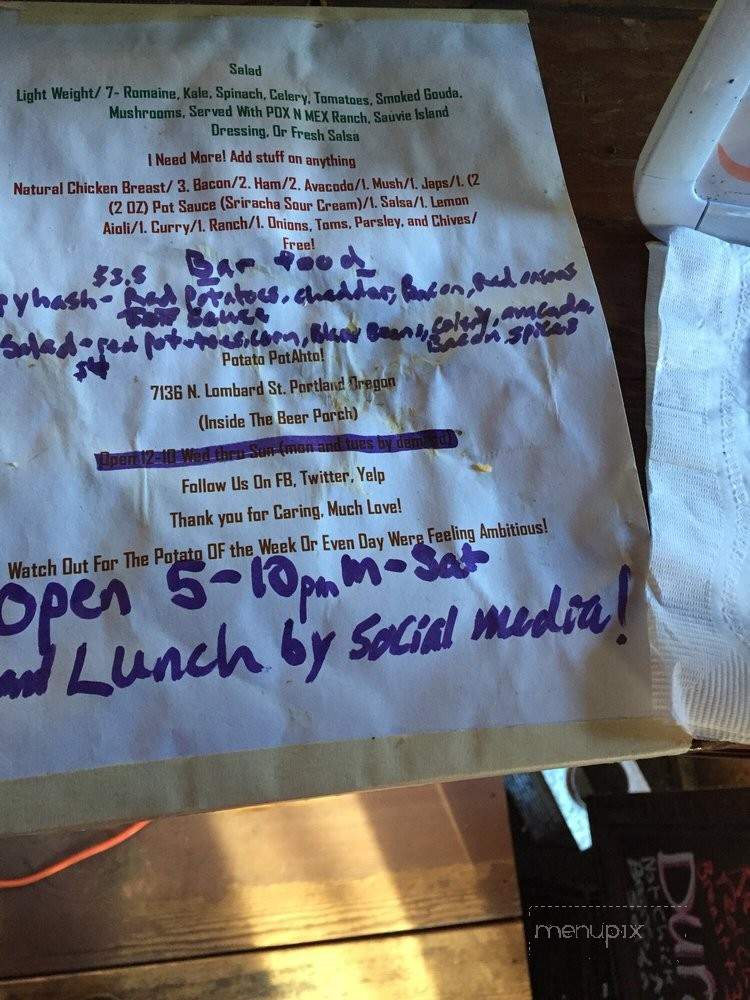 Salad
Light Weight/ 7- Romaine, Kale, Spinach, Celery, Tomatoes, Smoked Gouda,
Mushrooms, Served With PDX N MEX Ranch, Sauvie Island
Dressing, Or Fresh Salsa
I Need More! Add stuff on anything
Natural Chicken Breast/ 3. Bacon/2. Ham/2. Avacodo/1. Mush/1. Japs/1. (2
(2 OZ) Pot Sauce (Sriracha Sour Cream)/1. Salsa/1. Lemon
Aioli/1. Curry/1. Ranch/1. Onions, Toms, Parsley, and Chives/
Free!
$3.5 Bar Food
pyhash- Red Potatoes, cheddar, Bacon, Red onions
Sauce
Salad - red potatoes, corn, Black Beans, celery, avacado,
Bacon, spices
$4
Potato PotAhto!
7136 N. Lombard St. Portland Oregon
(Inside The Beer Porch)
Open 12-10 Wed thru Sun (mon and tues by demand)
Follow Us On FB, Twitter, Yelp
Thank you for Caring, Much Love!
Watch Out For The Potato OF the Week Or Even Day Were Feeling Ambitious!
Open 5-10pm M-Sat
and Lunch by Social media!
Dun
menupix